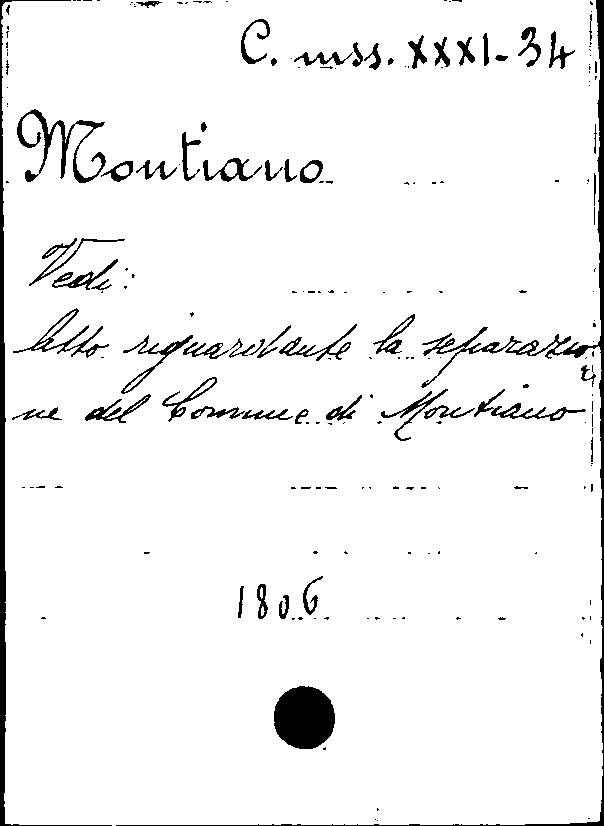 C. mss. XXXI-34
Montiano
Vedi:
Atto riguardante la separazio
ne del Comune di Montiano
1806